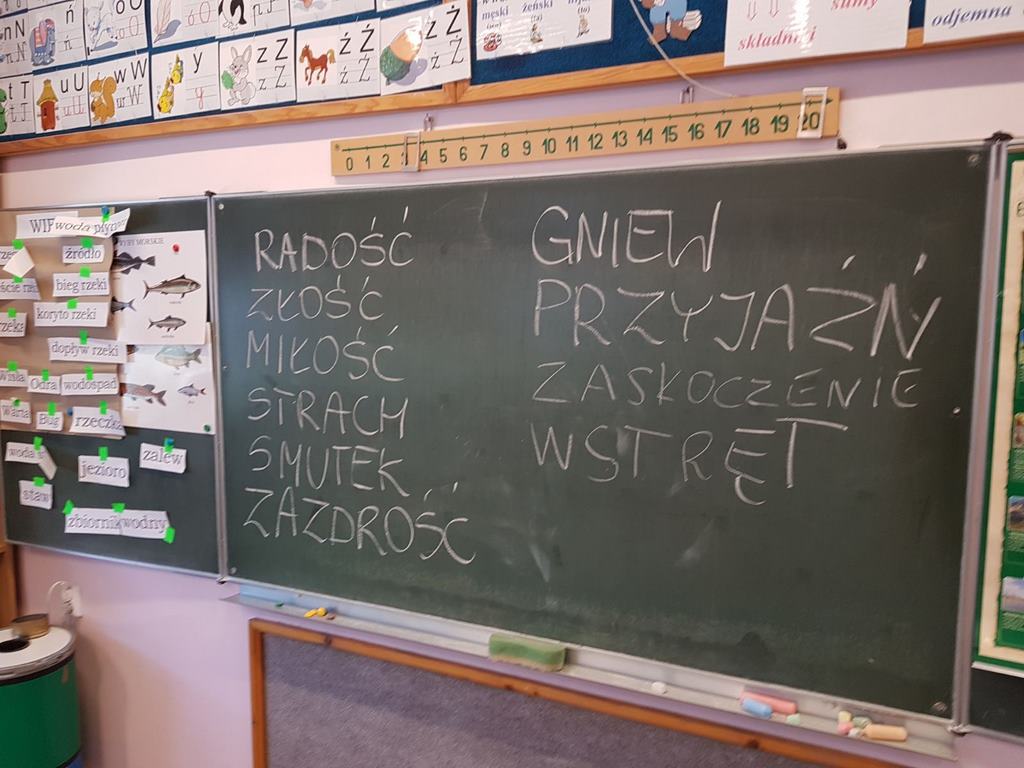 n N
ń
o O
ó Ó
n N
ń Ń
t T
u U
w W
y
z Z
ź Ź
ż Ż
u U
w W
y
z Z
ź Ź
ż Ż
męski żeński
(ten) (ta) (to)
składniki
sumy
odjemna
0 1 2 3 4 5 6 7 8 9 10 11 12 13 14 15 16 17 18 19 20
woda
RYBY MORSKIE
źródło
bieg rzeki
koryto rzeki
rzeka
dopływ rzeki
Wisła
Odra
wodospad
Warta
Bug
rzeczka
woda
jezioro
zalew
staw
zbiornik wodny
RADOŚĆ
ZŁOŚĆ
MIŁOŚĆ
STRACH
SMUTEK
ZAZDROŚĆ
GNIEW
PRZYJAŹŃ
ZASKOCZENIE
WSTRĘT